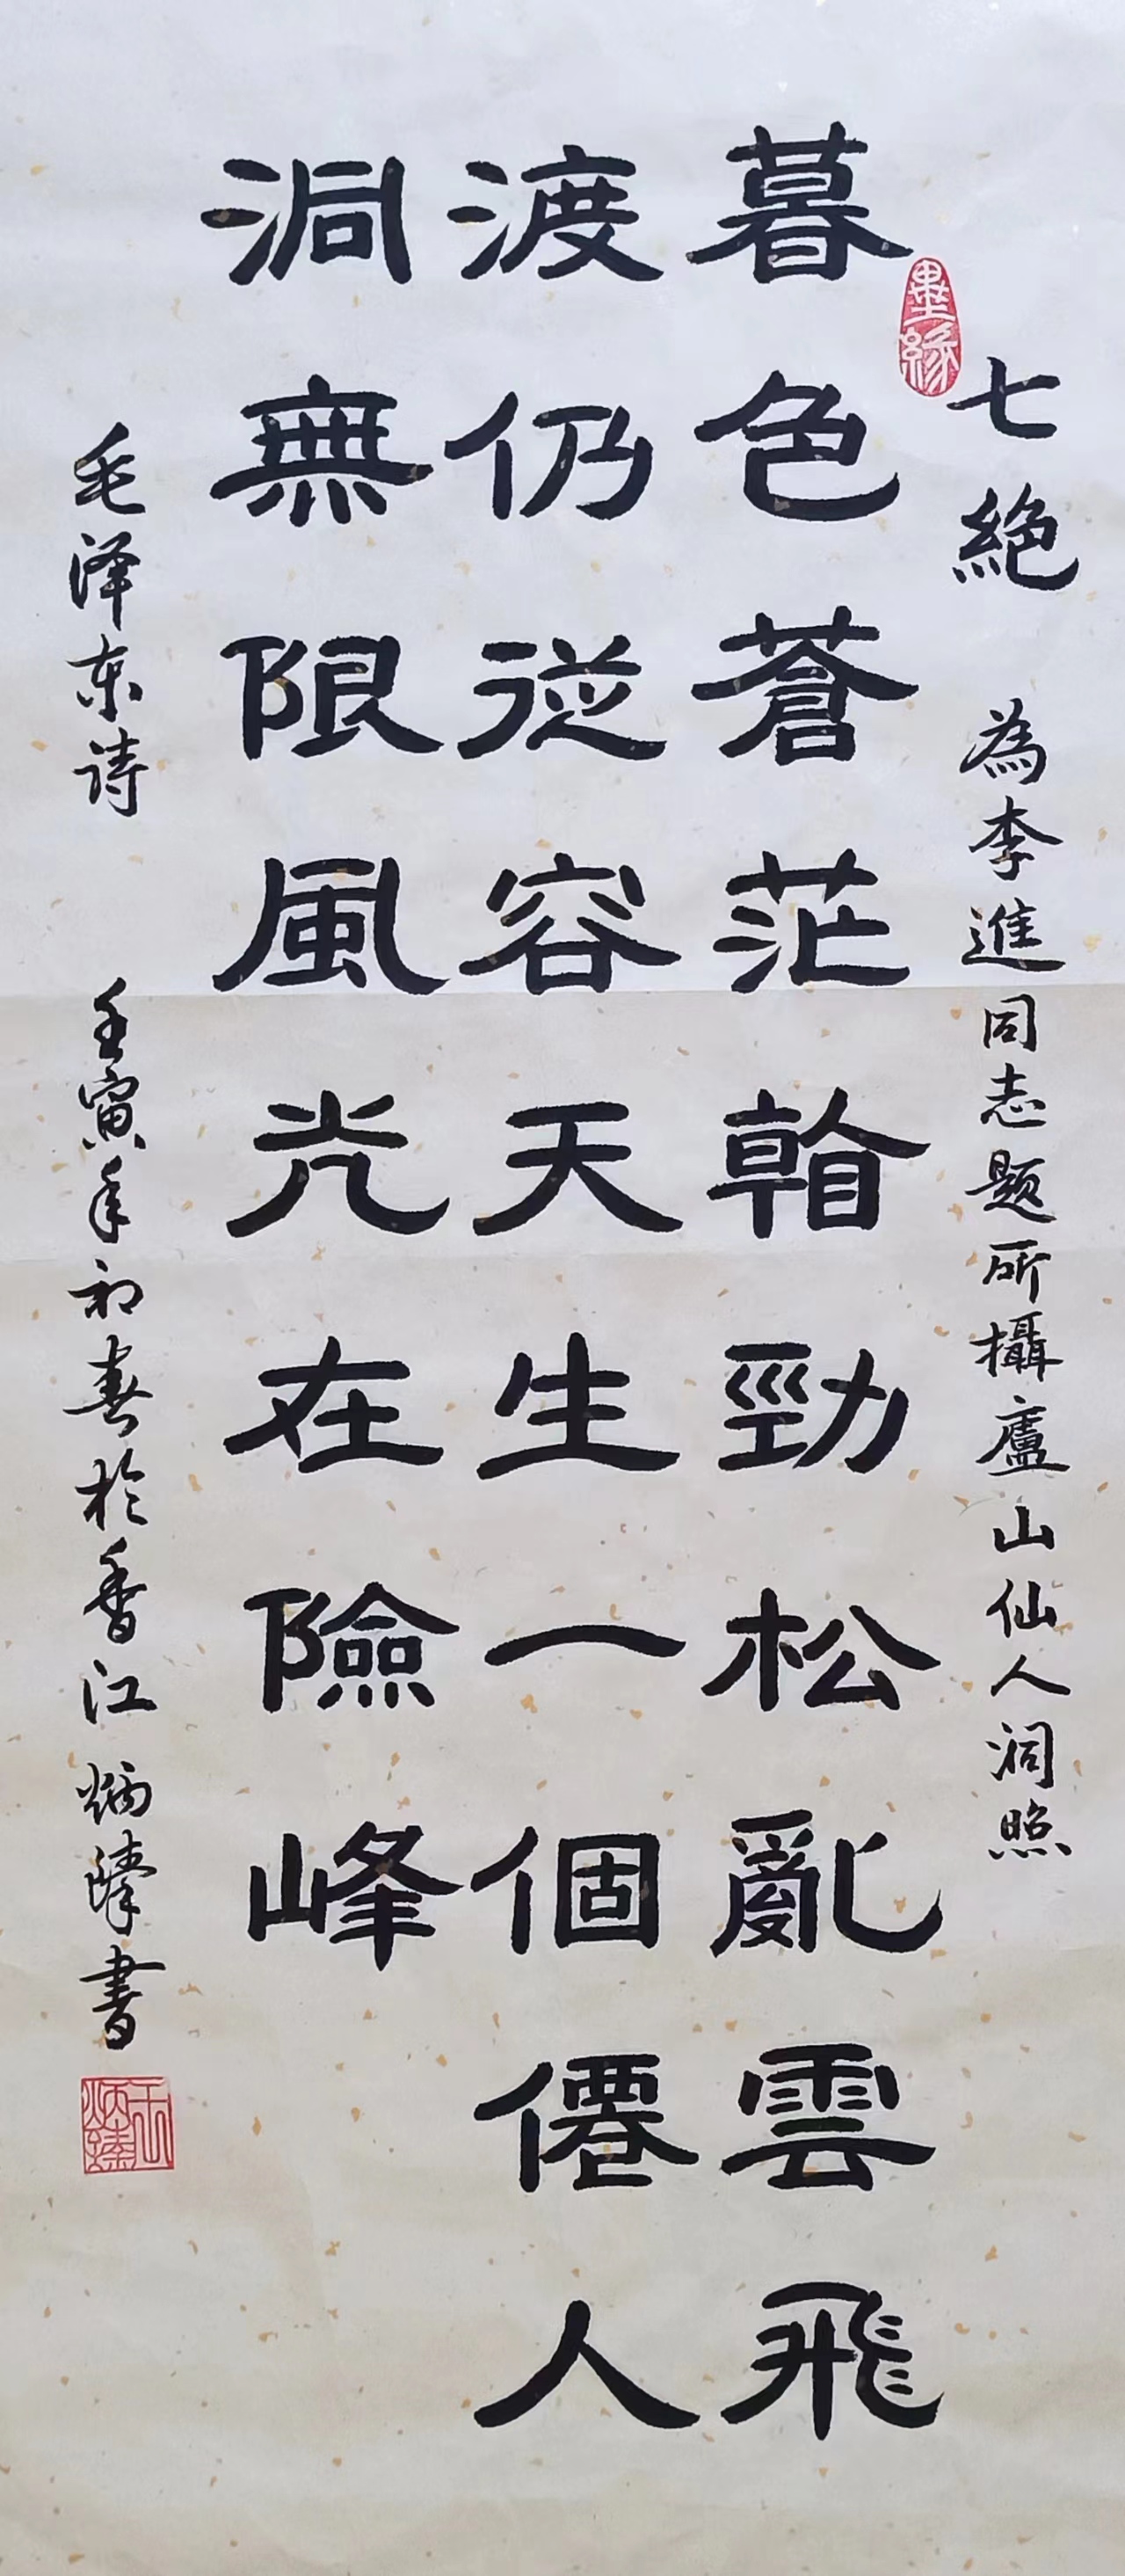 七絕 為李進同志题所攝廬山仙人洞照
墨緣
暮色蒼茫看勁松亂雲飛
渡仍從容天生一個僊人
洞無限風光在險峰
毛泽东诗 壬寅年初春於香江炳臻書